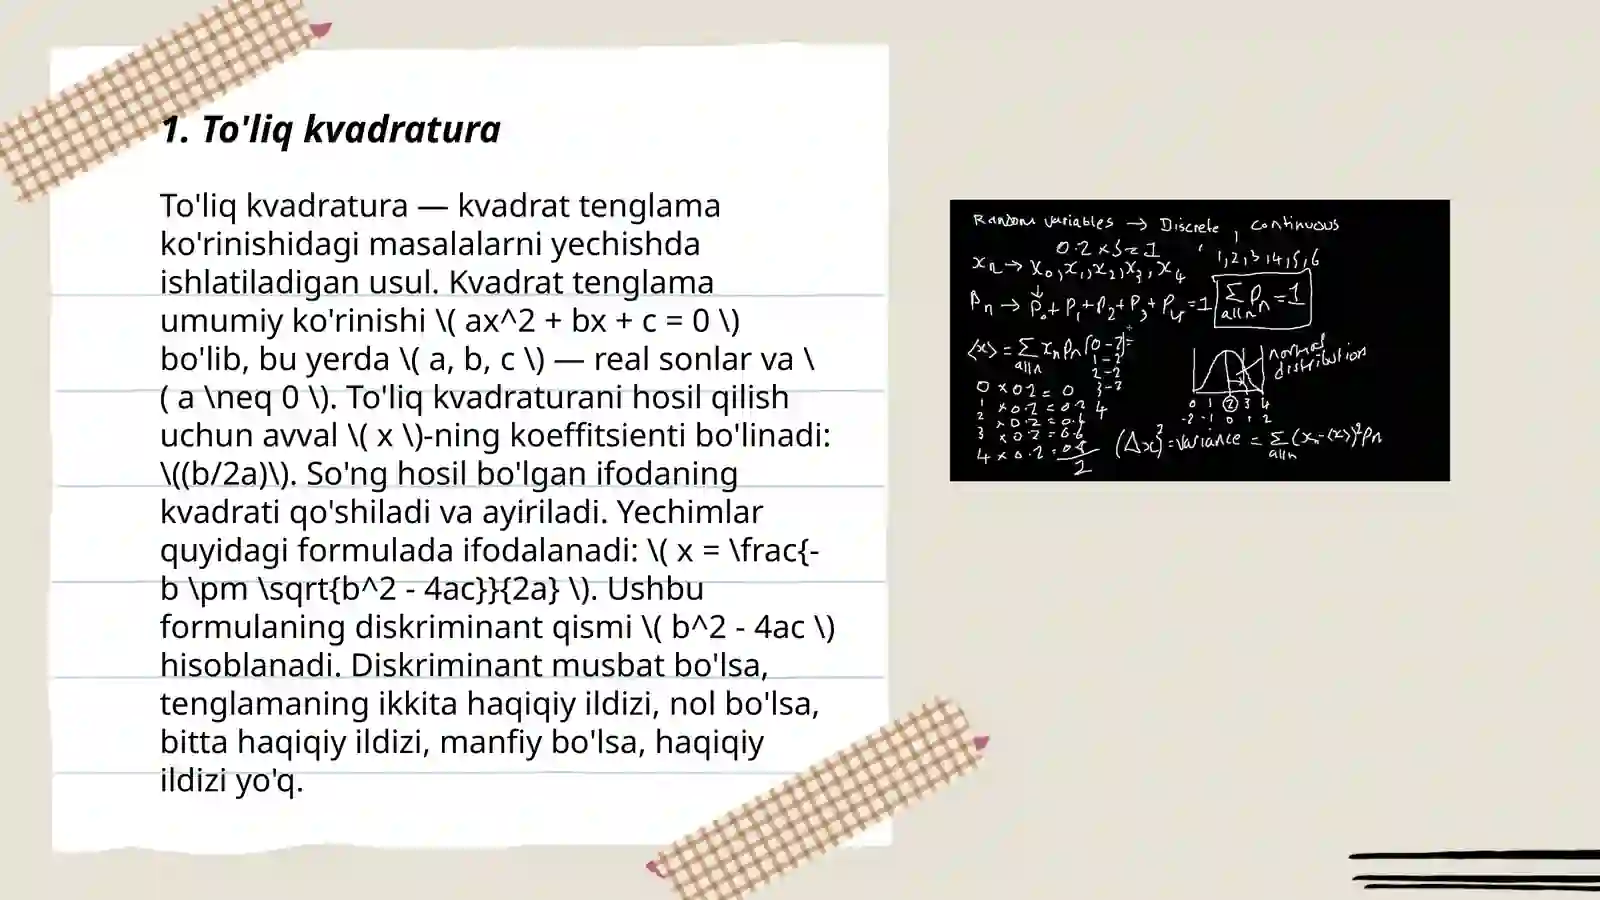 1. To'liq kvadratura
To'liq kvadratura — kvadrat tenglama
ko'rinishidagi masalalarni yechishda
ishlatiladigan usul. Kvadrat tenglama
umumiy ko'rinishi \( ax^2 + bx + c = 0 \)
bo'lib, bu yerda \( a, b, c \) — real sonlar va \
( a \neq 0 \). To'liq kvadraturani hosil qilish
uchun avval \( x \)-ning koeffitsienti bo'linadi:
\((b/2a)\). So'ng hosil bo'lgan ifodaning
kvadrati qo'shiladi va ayiriladi. Yechimlar
quyidagi formulada ifodalanadi: \( x = \frac{-
b \pm \sqrt{b^2 - 4ac}}{2a} \). Ushbu
formulaning diskriminant qismi \( b^2 - 4ac \)
hisoblanadi. Diskriminant musbat bo'lsa,
tenglamaning ikkita haqiqiy ildizi, nol bo'lsa,
bitta haqiqiy ildizi, manfiy bo'lsa, haqiqiy
ildizi yo'q.
Random variables → Discrete, continuous
1,2,3,4,5,6
xₙ → x₀, x₁, x₂, x₃, x₄
Pₙ → P₀ + P₁ + P₂ + P₃ + P₄ = 1
∑ Pₙ = 1
all n
⟨x⟩ = ∑ xₙ Pₙ
all n
normal
distribution
0 × 0.2 = 0
0 1 2 3 4
-2 -1 0 1 2
(Δx)² = variance = ∑ (xₙ - ⟨x⟩)² Pₙ
all n
2